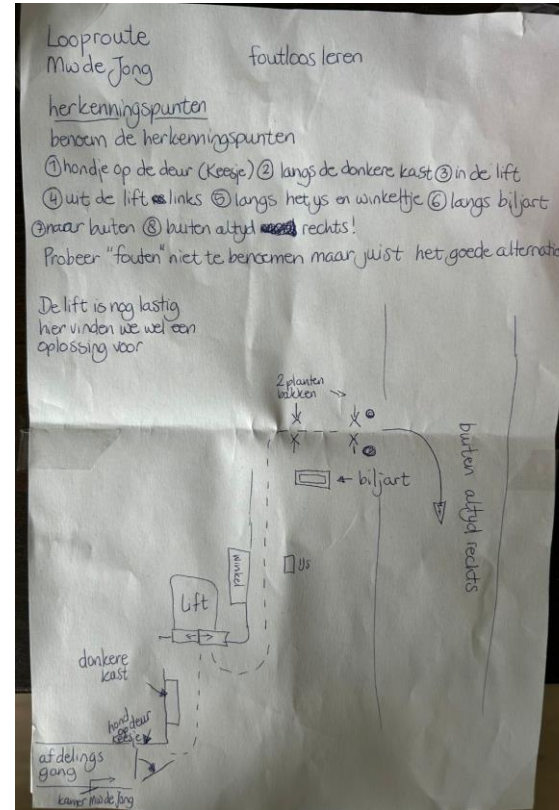 Looproute
Mw de Jong
foutloos leren
herkenningspunten
benoem de herkenningspunten
① hondje op de deur (Keesje) ② langs de donkere kast ③ in de lift
④ uit de lift links ⑤ langs het ys en winkeltje ⑥ langs biljart
⑦ naar buiten ⑧ buiten altyd rechts!
Probeer "fouten" niet te benoemen maar juist het goede alternatie
De lift is nog lastig
hier vinden we wel een
oplossing voor
2 planten
bakken
biljart
buiten altyd rechts
winkel
ys
Lift
donkere
kast
hond
op deur
keesje
afdelings
gang
kamer Mw de Jong